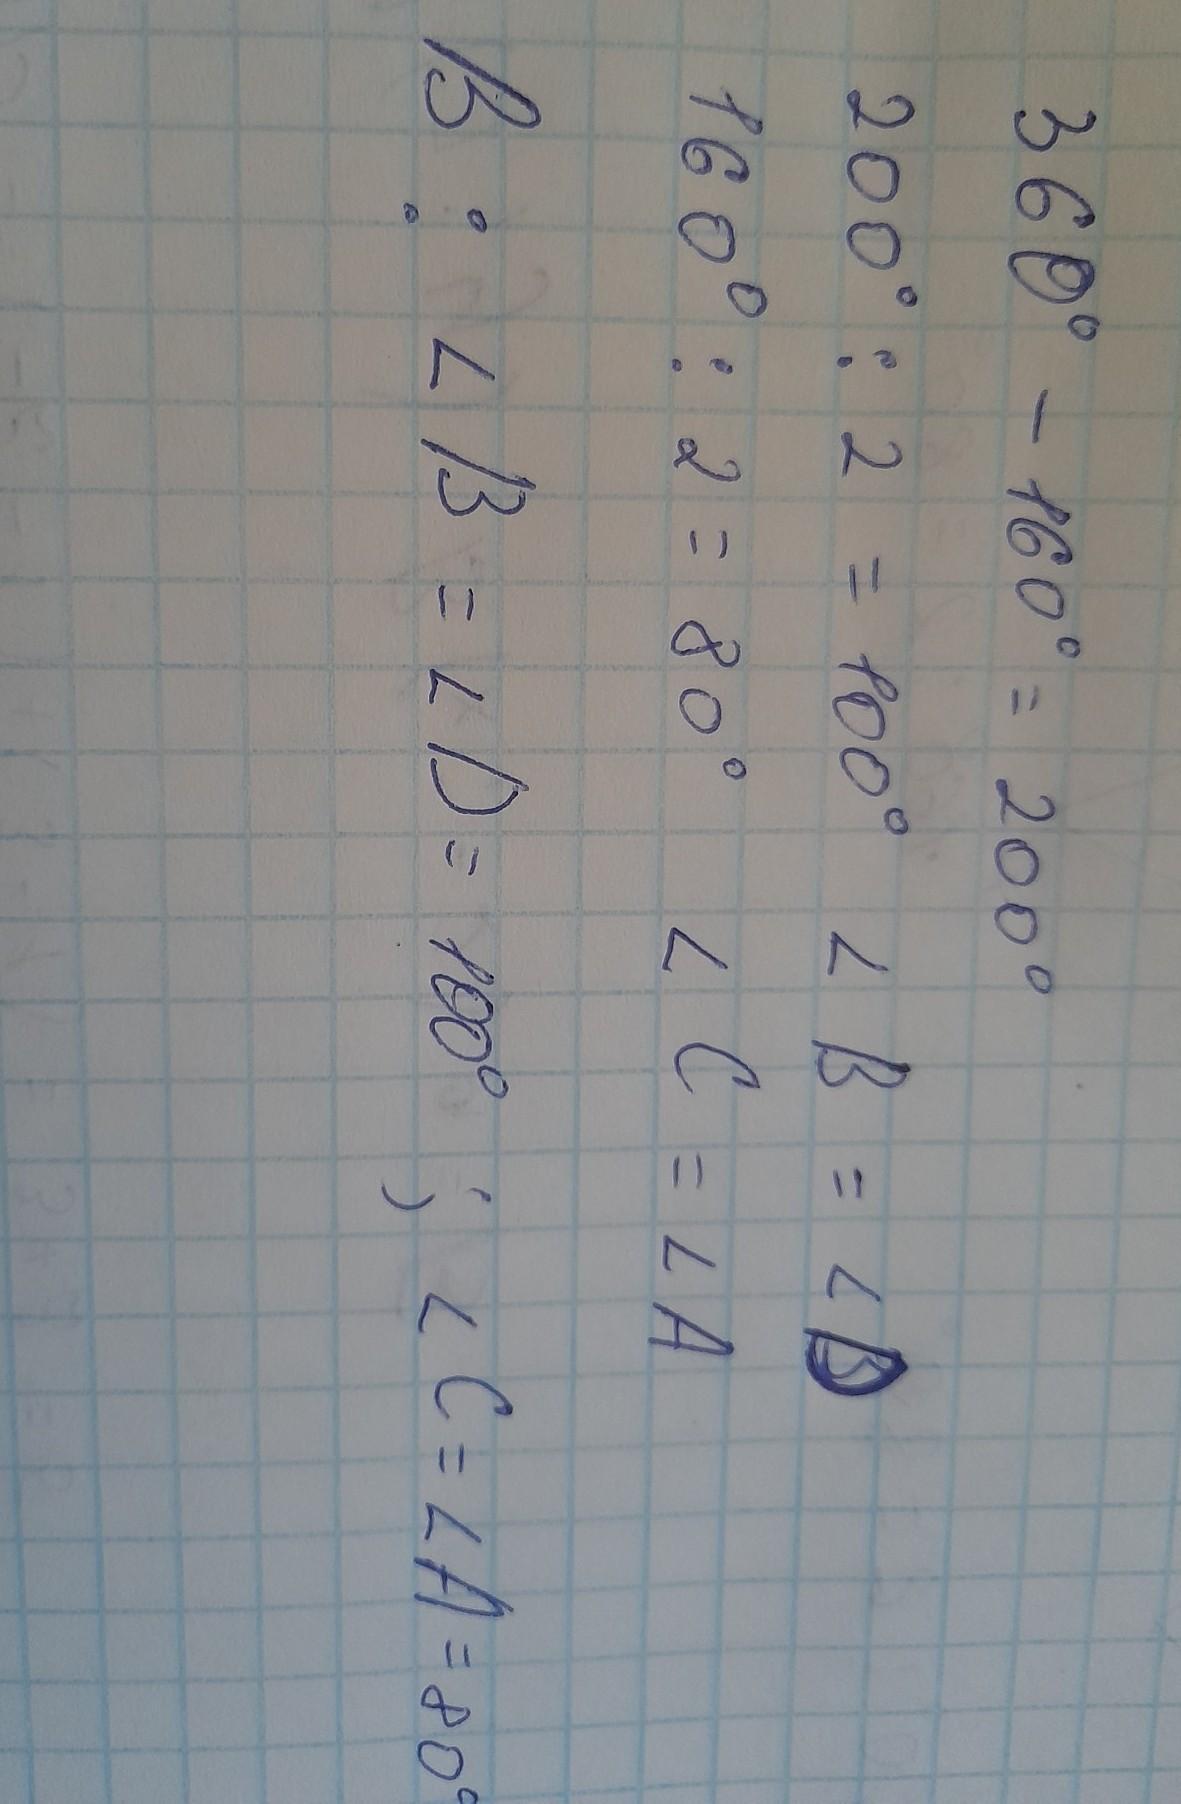 360° - 160° = 200°
200° : 2 = 100° ∠B = ∠D
160° : 2 = 80° ∠C = ∠A
В : ∠B = ∠D = 100° ; ∠C = ∠A = 80°